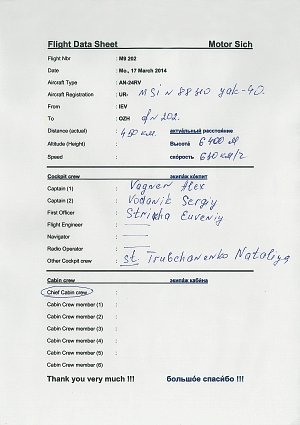 Flight Data Sheet Motor Sich
Flight Nbr : M9 202
Date : Mo., 17 March 2014
Aircraft Type : AN-24RV
Aircraft Registration : UR- MSi N 88310 yak-40.
From : IEV
To : OZH N 202.
Distance (actual) : 450 км. актуа́льный расстоя́ние
Altitude (Height) : Высота́ 6400 м
Speed : ско́рость 610 км/г
Cockpit crew экипа́ж ко́кпит
Captain (1) : Vagner Alex
Captain (2) : Vodanik Sergiy
First Officer : Strikha Evveniy
Flight Engineer :
Navigator :
Radio Operator :
Other Cockpit crew : st. Trubchanenko Nataliya
Cabin crew экипа́ж каби́на
Chief Cabin crew :
Cabin Crew member (1) :
Cabin Crew member (2) :
Cabin Crew member (3) :
Cabin Crew member (4) :
Cabin Crew member (5) :
Cabin Crew member (6) :
Thank you very much !!! большо́е спаси́бо !!!